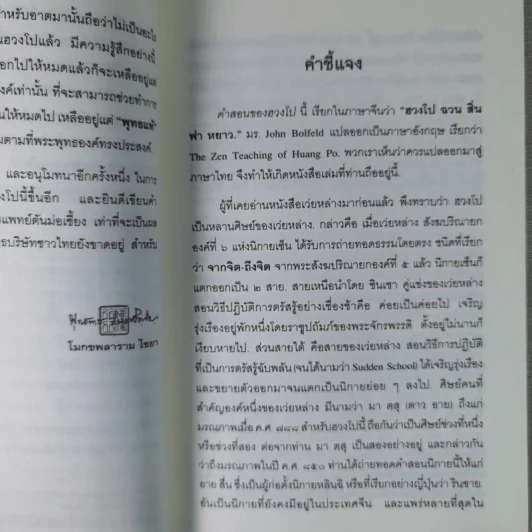 สำหรับอาตมานั้นถือว่าไม่เป็นอะไร
นฮวงโปแล้ว มีความรู้สึกอย่างนี้
อกไปให้หมดแล้วก็จะเหลืออยู่แต่
งค์เท่านั้น ที่จะสามารถช่วยทำการ
นให้หมดไป เหลืออยู่แต่ "พุทธแท้"
มตามที่พระพุทธองค์ทรงประสงค์
และอนุโมทนาอีกครั้งหนึ่ง ในการ
งโปนี้ขึ้นอีก และยินดีเขียนคำ
แพทย์ตันม่อเซี้ยง เท่าที่จะเป็นผล
รบริษัทชาวไทยยังขาดอยู่ สำหรับ
โมกขพลาราม ไชยา
คำชี้แจง
คำสอนของฮวงโป นี้ เรียกในภาษาจีนว่า "ฮวงโป ฉวน สิ่น
ฟา หยาว." มร. John Bolfeld แปลออกเป็นภาษาอังกฤษ เรียกว่า
The Zen Teaching of Huang Po. พวกเราเห็นว่าควรแปลออกมาสู่
ภาษาไทย จึงทำให้เกิดหนังสือเล่มที่ท่านถืออยู่นี้.
ผู้ที่เคยอ่านหนังสือเว่ยหล่างมาก่อนแล้ว พึงทราบว่า ฮวงโป
เป็นหลานศิษย์ของเว่ยหล่าง. กล่าวคือ เมื่อเว่ยหล่าง สังฆปริณายก
องค์ที่ ๖ แห่งนิกายเซ็น ได้รับการถ่ายทอดธรรมโดยตรง ชนิดที่เรียก
ว่า จากจิต-ถึงจิต จากพระสังฆปริณายกองค์ที่ ๕ แล้ว นิกายเซ็นก็
แตกออกเป็น ๒ สาย. สายเหนือนำโดย ชินเชา คู่แข่งของเว่ยหล่าง
สอนวิธีปฏิบัติการตรัสรู้อย่างเชื่องช้าคือ ค่อยเป็นค่อยไป เจริญ
รุ่งเรืองอยู่พักหนึ่งโดยราชูปถัมภ์ของพระจักรพรรดิ ตั้งอยู่ไม่นานก็
เงียบหายไป. ส่วนสายใต้ คือสายของเว่ยหล่าง สอนวิธีการปฏิบัติ
ที่เป็นการตรัสรู้ฉับพลัน (จนได้นามว่า Sudden School) ได้เจริญรุ่งเรือง
และขยายตัวออกมาจนแตกเป็นนิกายย่อย ๆ ลงไป. ศิษย์คนที่
สำคัญองค์หนึ่งของเว่ยหล่าง มีนามว่า มา ตฺสุ (ตาว อาย) ถึงแก่
มรณภาพเมื่อ ค.ศ. ๗๘๘ สำหรับฮวงโปนี้ ถือกันว่าเป็นศิษย์ช่วงที่หนึ่ง
หรือช่วงที่สอง ต่อจากท่าน มา ตฺสุ เป็นสองอย่างอยู่ และกล่าวกัน
ว่าถึงมรณภาพในปี ค.ศ. ๘๕๐ ท่านได้ถ่ายทอดคำสอนนิกายนี้ให้แก่
อาย สื่น ซึ่งเป็นผู้ก่อตั้งนิกายหลินฉิ หรือที่เรียกอย่างญี่ปุ่นว่า รินซาย.
อันเป็นนิกายที่ยังคงมีอยู่ในประเทศจีน และแพร่หลายที่สุดใน